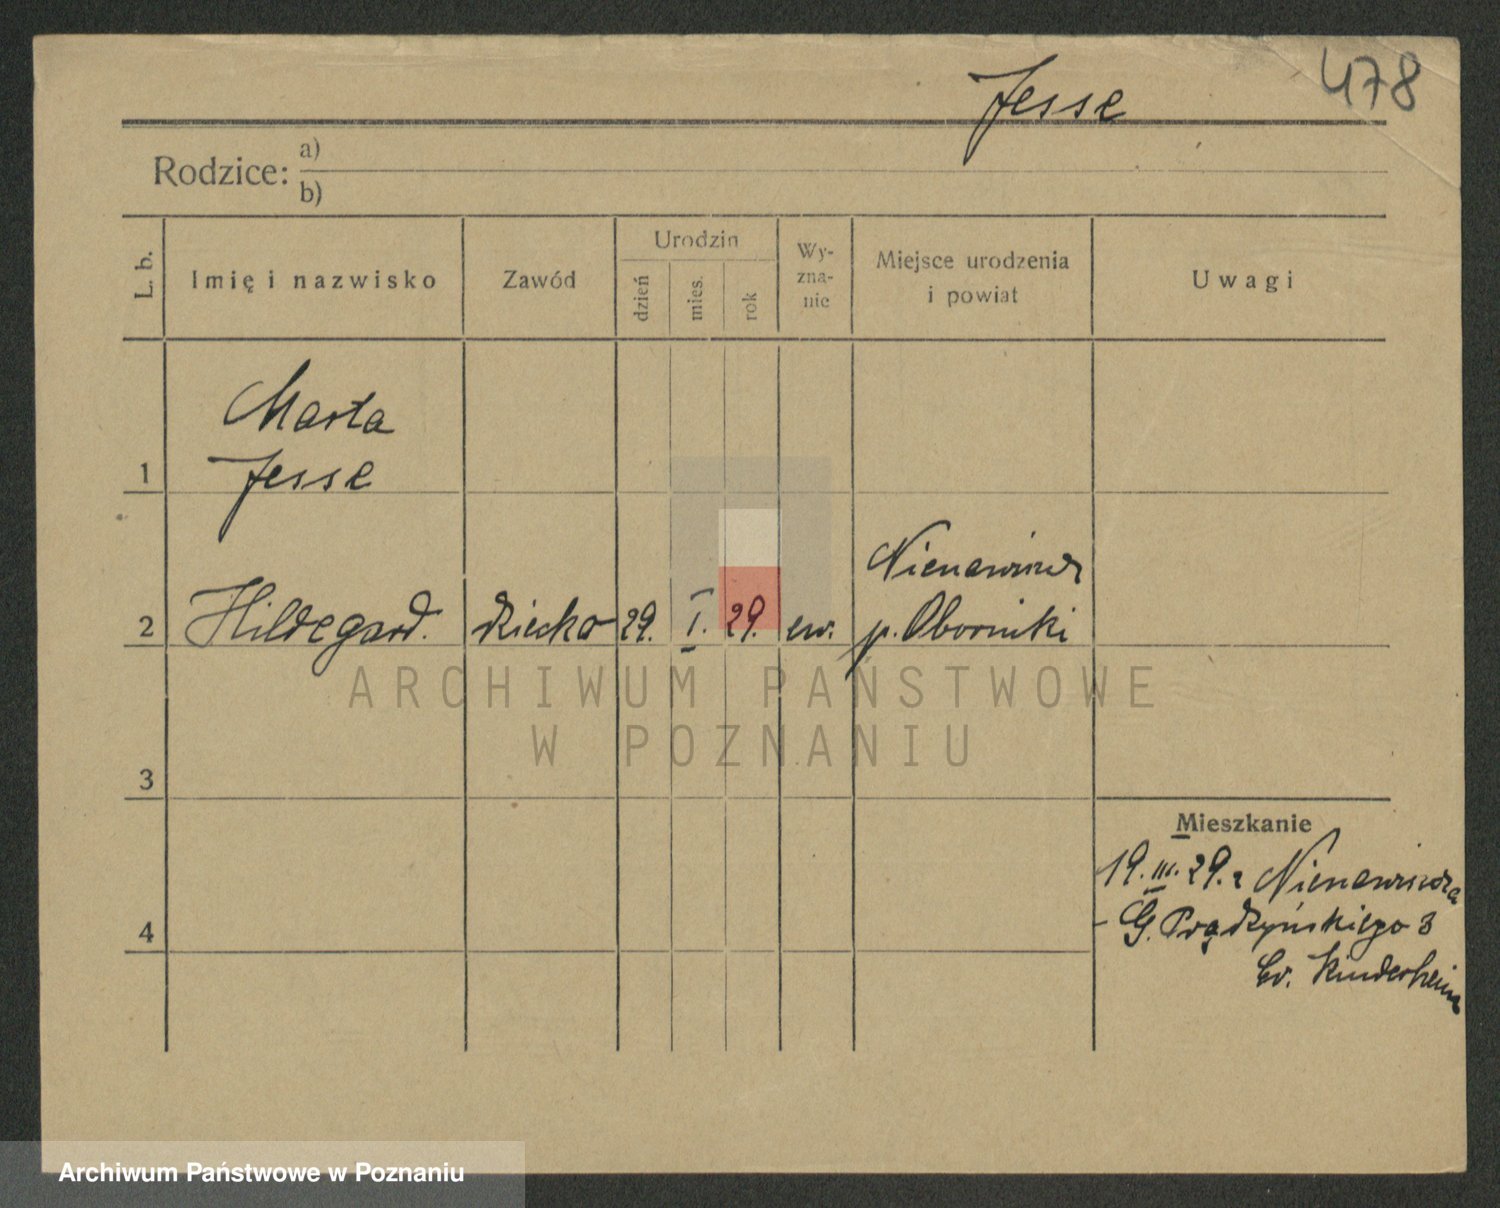 478
Jesse
Rodzice: a)
b)
L. b.
Imię i nazwisko
Zawód
Urodzin
dzień
mies.
rok
Wy-
zna-
nie
Miejsce urodzenia
i powiat
Uwagi
1
Marta
Jesse
2
Hildegard.
dziecko
29.
I.
29.
ew.
Nienawiszcz
p. Oborniki
3
4
Mieszkanie
19.III.29. z Nienawiszcza
- G. Prądzyńskiego 3
Ev. Kinderheim
ARCHIWUM PAŃSTWOWE
W POZNANIU
Archiwum Państwowe w Poznaniu